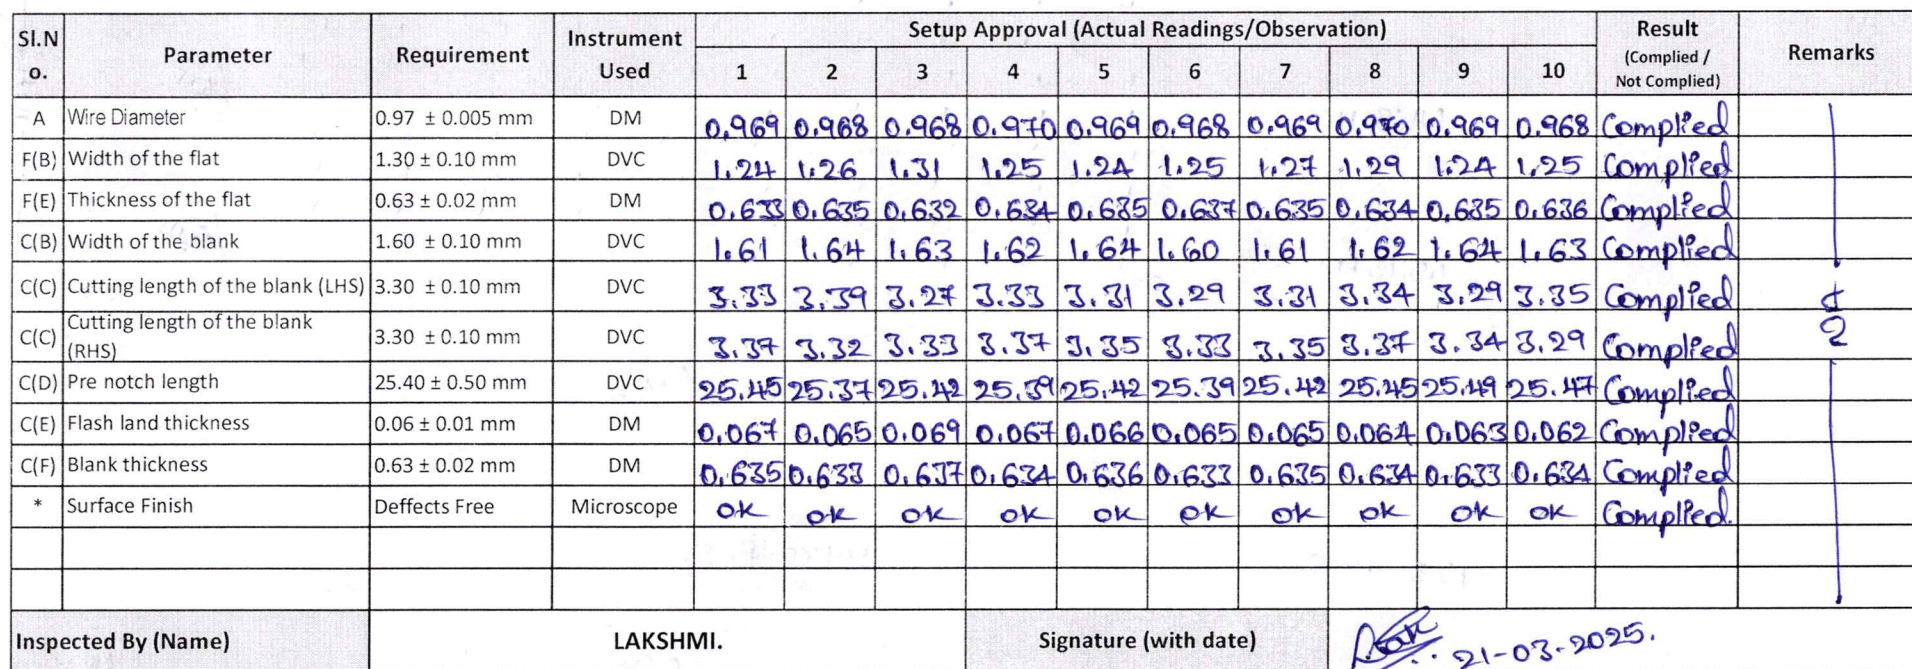 Sl.No. Parameter Requirement Instrument Used Setup Approval (Actual Readings/Observation) Result (Complied / Not Complied) Remarks
1 2 3 4 5 6 7 8 9 10
A Wire Diameter 0.97 ± 0.005 mm DM 0.969 0.968 0.968 0.970 0.969 0.968 0.969 0.970 0.969 0.968 Complied
F(B) Width of the flat 1.30 ± 0.10 mm DVC 1.24 1.26 1.31 1.25 1.24 1.25 1.27 1.29 1.24 1.25 Complied
F(E) Thickness of the flat 0.63 ± 0.02 mm DM 0.633 0.635 0.632 0.634 0.635 0.637 0.635 0.634 0.635 0.636 Complied
C(B) Width of the blank 1.60 ± 0.10 mm DVC 1.61 1.64 1.63 1.62 1.64 1.60 1.61 1.62 1.64 1.63 Complied
C(C) Cutting length of the blank (LHS) 3.30 ± 0.10 mm DVC 3.33 3.39 3.27 3.33 3.31 3.29 3.31 3.34 3.29 3.35 Complied
C(C) Cutting length of the blank (RHS) 3.30 ± 0.10 mm DVC 3.37 3.32 3.33 3.37 3.35 3.33 3.35 3.37 3.34 3.29 Complied
C(D) Pre notch length 25.40 ± 0.50 mm DVC 25.45 25.37 25.42 25.39 25.42 25.39 25.42 25.45 25.49 25.47 Complied
C(E) Flash land thickness 0.06 ± 0.01 mm DM 0.067 0.065 0.069 0.067 0.066 0.065 0.065 0.064 0.063 0.062 Complied
C(F) Blank thickness 0.63 ± 0.02 mm DM 0.635 0.633 0.637 0.634 0.636 0.633 0.635 0.634 0.633 0.634 Complied
* Surface Finish Deffects Free Microscope OK OK OK OK OK OK OK OK OK OK Complied.
Inspected By (Name) LAKSHMI. Signature (with date) 21-03-2025.